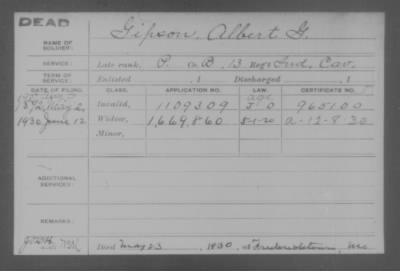 DEAD
Gipson, Albert G.
NAME OF SOLDIER:
SERVICE: Late rank, P. Co. B, 13 Reg't Ind. Cav.
TERM OF SERVICE: Enlisted , 1 Discharged , 1
DATE OF FILING. CLASS. APPLICATION NO. LAW. CERTIFICATE NO.
Age
1892 May 2 Invalid, 1109309 965100
1930 June 12 Widow, 1,669,860 5-1-20 a-12-8-30
Minor,
ADDITIONAL SERVICES:
REMARKS:
Died May 23, 1930, at Fredericktown, Mo.